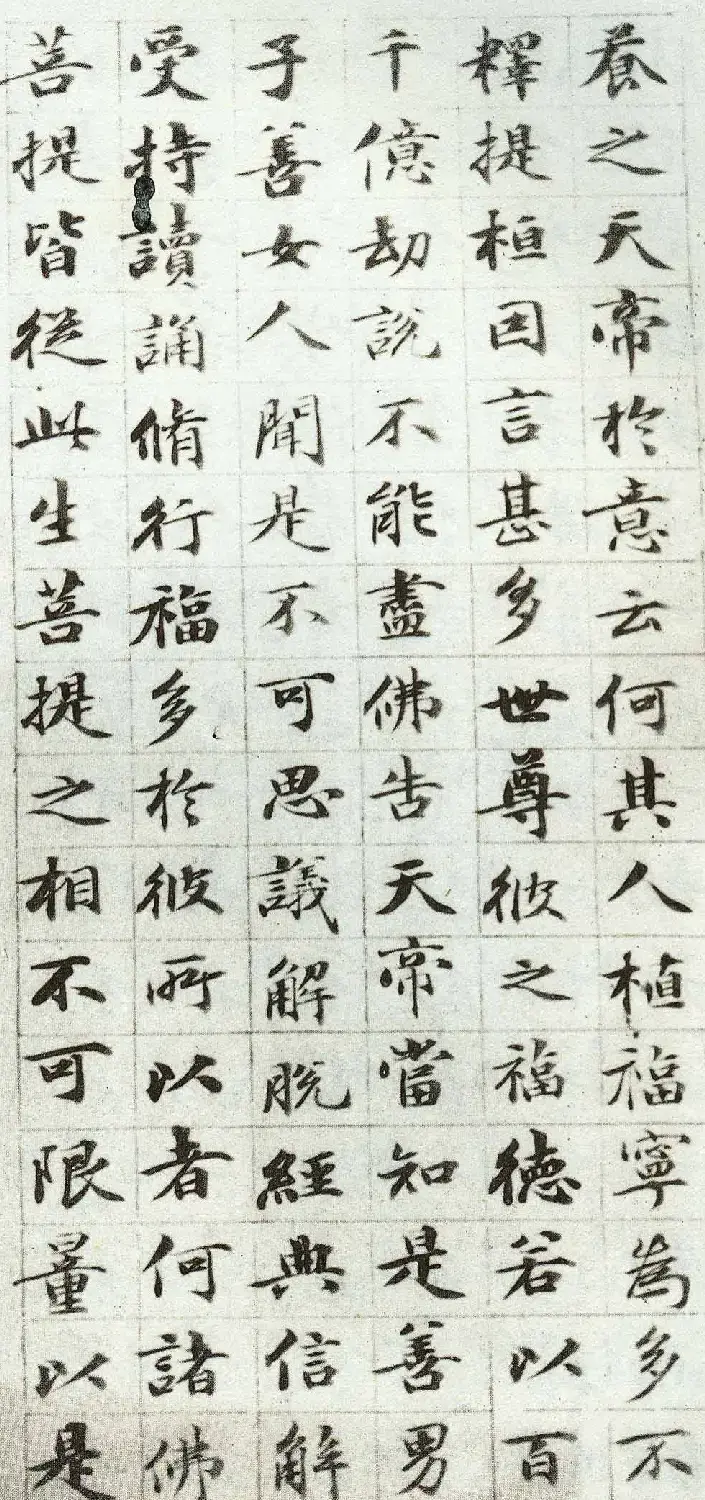 養之天帝於意云何其人植福寧為多不
釋提桓因言甚多世尊彼之福德若以百
千億劫說不能盡佛告天帝當知是善男
子善女人聞是不可思議解脫經典信解
受持讀誦脩行福多於彼所以者何諸佛
菩提皆從此生菩提之相不可限量以是